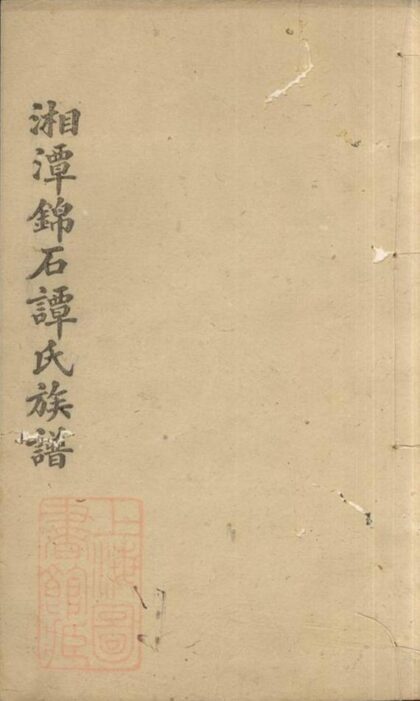 湘潭錦石譚氏族譜
上海圖
書館藏